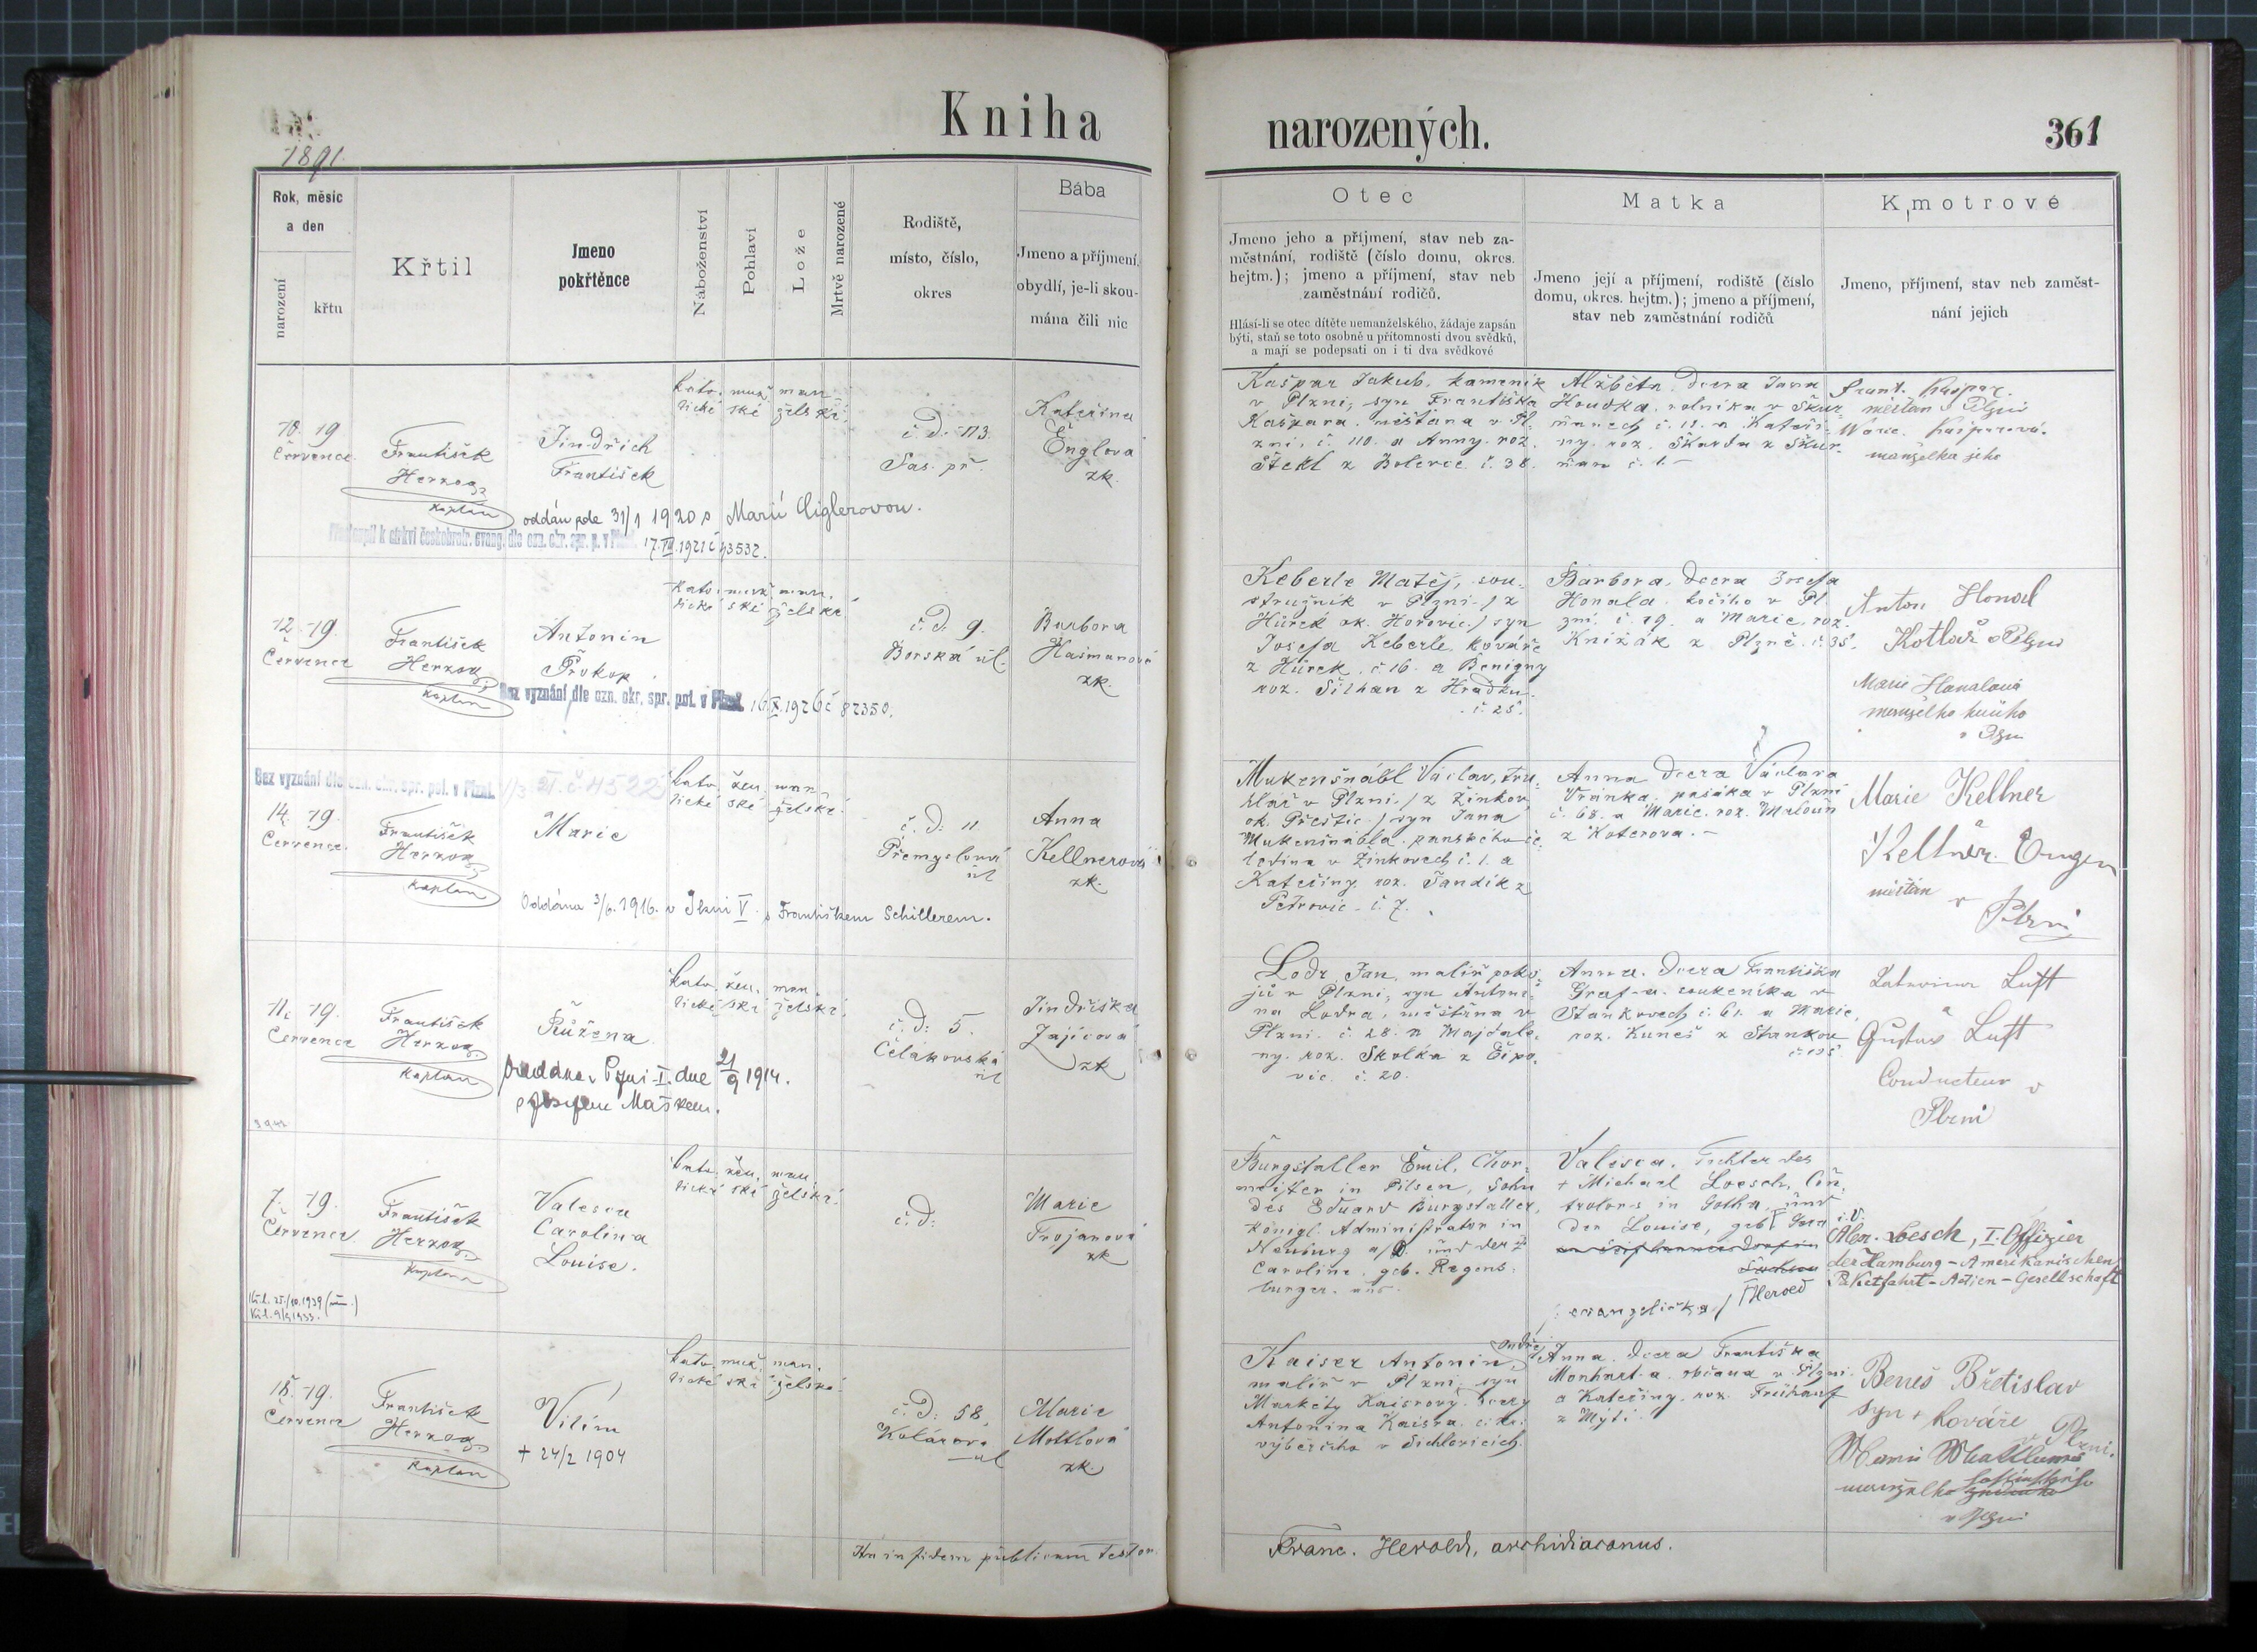 Kniha
narozených.
361
1891.
Rok, měsíc
a den
narození
křtu
Křtil
Jmeno
pokřtěnce
Náboženství
Pohlaví
Lože
Mrtvě narozené
Rodiště,
místo, číslo,
okres
Bába
Jmeno a příjmení,
obydlí, je-li skou-
mána čili nic
Otec
Jmeno jeho a příjmení, stav neb za-
městnání, rodiště (číslo domu, okres.
hejtm.); jmeno a příjmení, stav neb
zaměstnání rodičů.
Hlásí-li se otec dítěte nemanželského, žádaje zapsán
býti, staň se toto osobně u přítomnosti dvou svědků,
a mají se podepsati on i ti dva svědkové
Matka
Jméno její a příjmení, rodiště (číslo
domu, okres. hejtm.); jmeno a příjmení,
stav neb zaměstnání rodičů
Kmotrové
Jmeno, příjmení, stav neb zaměst-
nání jejich
10. 19
Července
František
Herzog
Kaplan
Jindřich
František
kato- muž man-
lické ské želské
č. d. 113
Sas. př.
Kateřina
Englova
zk.
oddán dle 31/1 1920 s Marií Ciglerovou.
Přestoupil k církvi českobratr. evang. dle ozn. okr. spr. p. v Plzni 17. 1921 č 43532.
Kašpar Jakub, kameník
v Plzni, syn Františka
Kašpara, měšťana v Pl-
zni, č. 110. a Anny roz.
Štekl z Bolevce č. 38.
Alžběta, dcera Jana
Houdka, rolníka v Škur-
ňanech č. 11. a Kateři-
ny roz. Škarda z Škur-
ňan č. 1.
Frant. Kašpar
měšťan v Plzni
Kašparová
manželka jeho
12. 19.
Července
František
Herzog
Kaplan
Antonín
Prokop
kato- muž man-
lické ské želské
č. d. 9.
Borská ul.
Barbora
Hašmanová
zk.
Bez vyznání dle ozn. okr. spr. pol. v Plzni 16.X.1926 č 82350.
Keberle Matěj, sou-
stružník v Plzni / z
Hůrek ok. Hořovic / syn
Josefa Keberle, kováře
z Hůrek č. 16. a Benigny
roz. Šilhan z Hrádku
č. 25.
Barbora, dcera Josefa
Honala, kočího v Pl-
zni, č. 19. a Marie, roz.
Knížák z Plzně č. 35.
Anton Honal
Kotlář v Plzni
Marie Honalová
manželka
v Plzni
Bez vyznání dle ozn. okr. spr. pol. v Plzni
14. 19.
Července
František
Herzog
Kaplan
Marie
kato- žen- man-
lické ské želské
č. d. 11
Přemyslova
ul
Anna
Kellnerová
zk.
Oddána 3/6. 1916. v Plzni V. s Františkem Schillerem.
Mukenšnábl Václav, tru-
hlář v Plzni / z Žinkov
ok. Přeštic / syn Jana
Mukenšnábla, panského če-
ledína v Žinkovech č. 1. a
Kateřiny roz. Šandík z
Petrovic č. 7.
Anna dcera Václava
Vránka, pasáka v Plzni
č. 68. a Marie, roz. Maloun
z Koterova.
Marie Kellner
Kellner Eugen
měšťan
v
Plzni
11. 19.
Července
František
Herzog
Kaplan
Růžena
kato- žen- man-
lické ské želské
č. d. 5.
Čelakovská
ul
Jindřiška
Zajícová
zk
Oddána v Plzni I. dne 21/9 1914.
s Josefem Maškem.
Lodr Jan, malíř poko-
jů v Plzni, syn Antoní-
na Lodra, měšťana v
Plzni č. 28. a Majdale-
ny roz. Skolka z Čipo-
vic č. 20.
Anna, dcera Františka
Graf-a soukeníka v
Stankovech č. 61. a Marie,
roz. Kuneš z Stankov
Luft
Gustav Luft
Conducteur v
Plzni
7. 19.
Července
František
Herzog
Kaplan
Valesca
Carolina
Louise.
kato- žen- man-
lické ské želské
č. d:
Marie
Trojanová
zk
Burgstaller Emil, Chor-
meister in Pilsen, Sohn
des Eduard Burgstaller,
königl. Administrator in
Neuburg a/D. und der
Caroline, geb. Regens-
burger.
Valesca, Tochter des
+ Michael Loesch, Con-
trolors in Gotha und
der Louise, geb.
Herold
/: evangelička :/
i. V.
Alex. Loesch, I. Offizier
der Hamburg-Amerikanischen
Paketfahrt-Actien-Gesellschaft
18. 19.
Července
František
Herzog
Kaplan
Vilím
+ 24/2 1904
kato- muž man-
lické ské želské
č. d: 58,
Kolárova
ul
Marie
Mottlová
zk.
Kaiser Antonín, Ondřej
malíř v Plzni, syn
Markéty Kaisrovy, dcery
Antonína Kaisra
výběrčího v
Anna, dcera Františka
Monhart-a, občana v Plzni
a Kateřiny, roz. Frühauf
z Mýti.
Beneš Břetislav
syn + kováře v Plzni.
manželka
v Plzni
In fidem publicam testor.
Franc. Herold, archidiaconus.